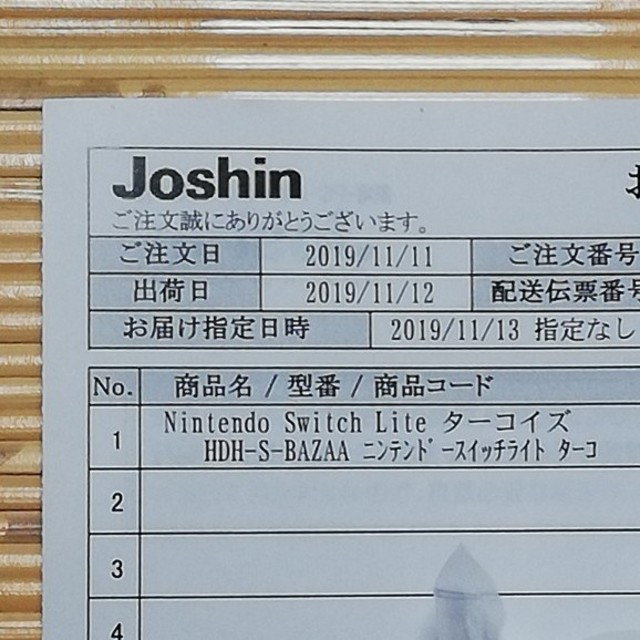 Joshin
ご注文誠にありがとうございます。
ご注文日 2019/11/11 ご注文番号
出荷日 2019/11/12 配送伝票番号
お届け指定日時 2019/11/13 指定なし
No. 商品名 / 型番 / 商品コード
1 Nintendo Switch Lite ターコイズ
HDH-S-BAZAA ニンテンドースイッチライト ターコ
2
3
4